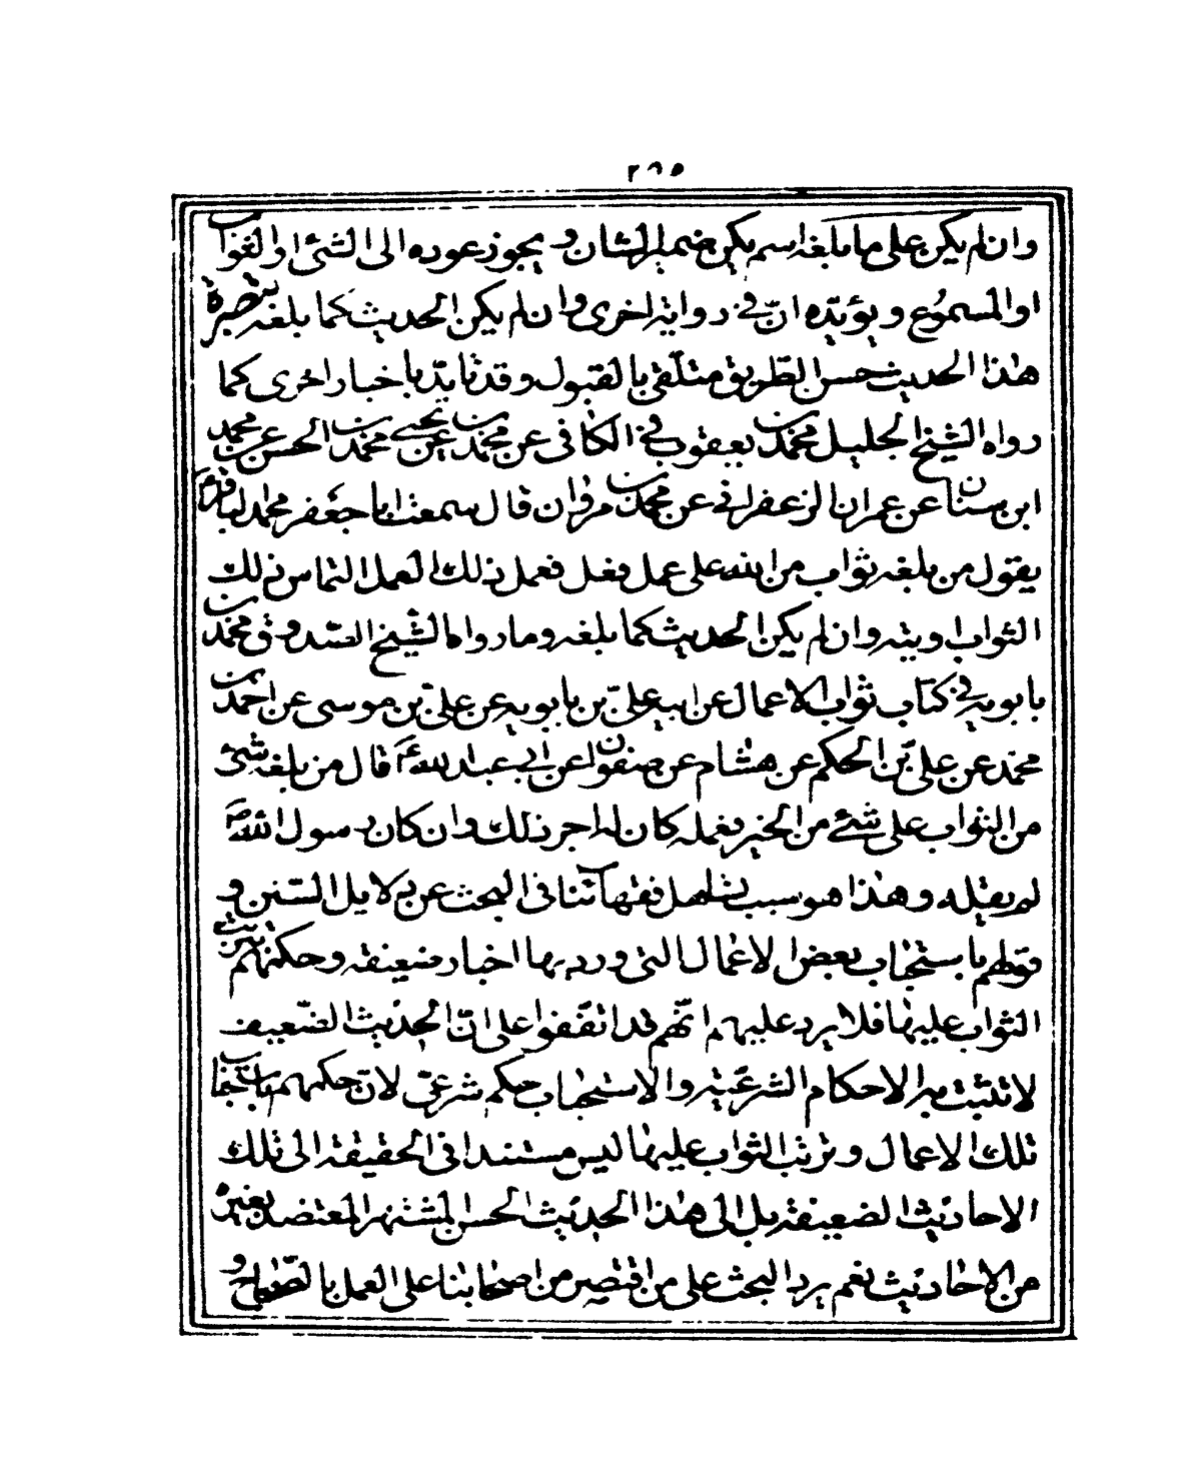 ٢٩٥
وان لم يكن على ما بلغه اسم يكن ضمير الشان و يجوز عوده الى الشئ او الثواب
او المسموع ويؤيّده انّ في رواية اخرى وان لم يكن الحديث كما بلغه تبصرة
هذا الحديث حسن الطّريق متلقّى بالقبول وقد تايّد باخبار اخرى كما
رواه الشيخ الجليل محمّد بن يعقوب في الكافي عن محمّد بن يحيى عن محمّد بن الحسن عن محمد
ابن سنان عن عمران الزعفراني عن محمّد بن مروان قال سمعت ابا جعفر محمد الباقر ع
يقول من بلغه ثواب من الله على عمل فعمل ذلك العمل التماس ذلك
الثواب اوتيه وان لم يكن الحديث كما بلغه وما رواه الشّيخ الصّدوق محمّد بن
بابويه في كتاب ثواب الاعمال عن ابيه علىّ بن بابويه عن علىّ بن موسى عن احمد بن
محمّد عن علىّ بن الحكم عن هشام عن صفوان عن ابي عبد الله ع قال من بلغه شئ
من الثواب على شئ من الخير فعمله كان له اجر ذلك وان كان رسول الله ص
لم يقله وهذا هو سبب تساهل فقهآئنا في البحث عن دلايل السّنن و
قولهم باستحباب بعض الاعمال التى ورد بها اخبار ضعيفة وحكمهم بترتّب
الثواب عليها فلا يرد عليهم انّهم قد اتّفقوا على انّ الحديث الضّعيف
لا تثبت به الاحكام الشرعيّة والاستحباب حكم شرعىّ لانّ حكمهم باستحباب
تلك الاعمال وترتّب الثواب عليها ليس مستندا فى الحقيقة الى تلك
الاحاديث الضعيفة بل الى هذا الحديث الحسن المشتهر المعتضد بغيره
من الاحاديث نعم يرد البحث على من اقتصر من اصحابنا على العمل بالصّحاح و